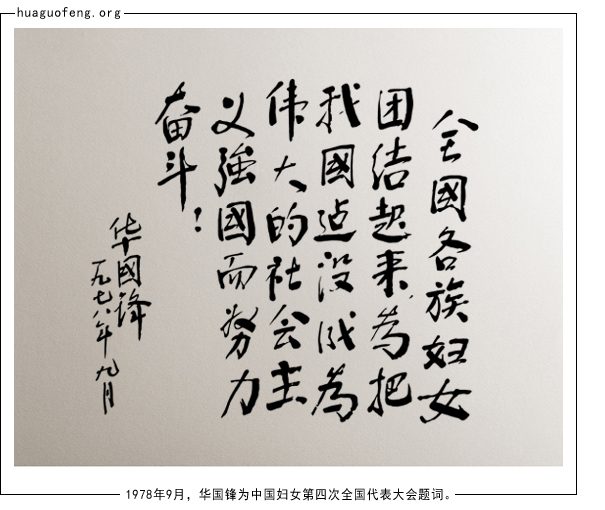 huaguofeng.org
全國各族妇女
团结起来,為把
我國迠设成為
伟大的社会主
义強國而努力
奋斗！
华國锋
一九七八年九月
1978年9月，华国锋为中国妇女第四次全国代表大会题词。